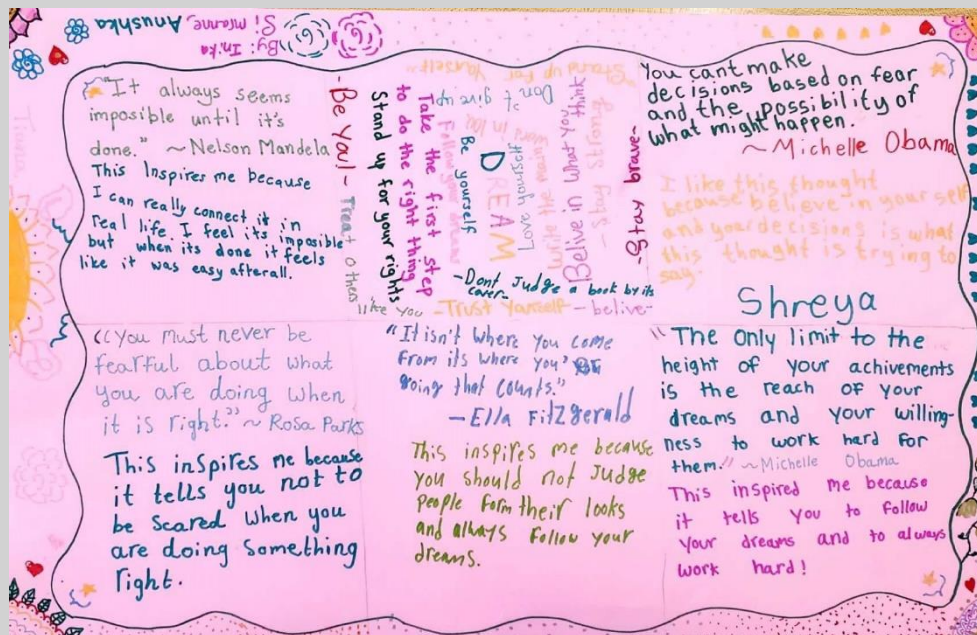 By: Inika
Simranne Anushka
"It always seems
imposible until it's
done." ~Nelson Mandela
This Inspires me because
I can really connect it in
real life. I feel its imposible
but when its done it feels
like it was easy afterall.
-Be you!-
Treat others
like you
Stand up for your rights
Take the first step
to do the right thing
Follow your dreams
Be yourself
Don't give up
Stand up for yourself-
DREAM
Love yourself
Belive in what you think
-Stay strong-
-Stay brave-
-Dont Judge a book by its
cover-
-Trust Yourself- -belive-
You cant make
decisions based on fear
and the possibility of
what might happen.
~Michelle Obama
I like this thought
because believe in your self
and your decisions is what
this thought is trying to
say.
Shreya
"You must never be
fearful about what
you are doing when
it is right." ~ Rosa Parks
This inspires me because
it tells you not to
be scared when you
are doing something
right.
"It isn't where you come
from its where you'
going that counts."
-Ella Fitzgerald
This inspires me because
you should not Judge
people form their looks
and always follow your
dreams.
"The only limit to the
height of your achivements
is the reach of your
dreams and your willing-
ness to work hard for
them." ~Michelle Obama
This inspired me because
it tells you to follow
your dreams and to always
work hard!